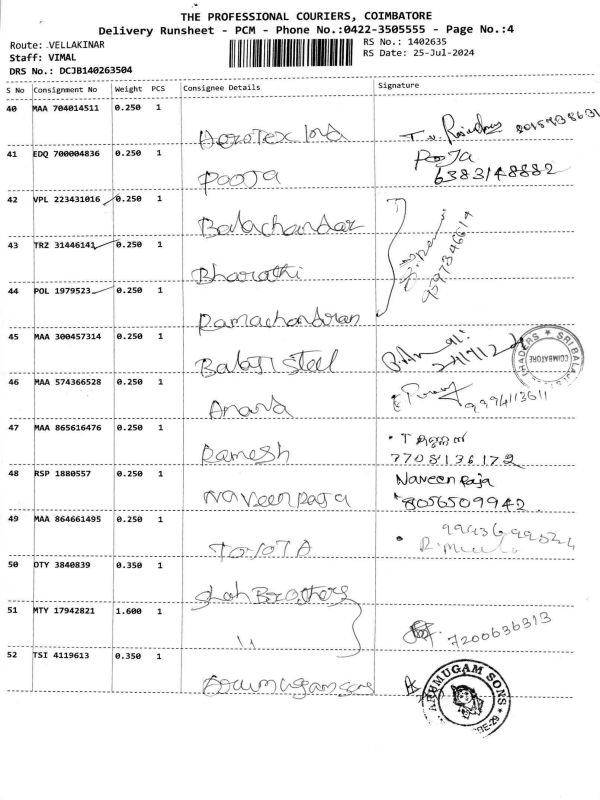 THE PROFESSIONAL COURIERS, COIMBATORE
Delivery Runsheet - PCM - Phone No.:0422-3505555 - Page No.:4
Route: VELLAKINAR
RS No.: 1402635
Staff: VIMAL
RS Date: 25-Jul-2024
DRS No.: DCJB140263504
S No Consignment No Weight PCS Consignee Details Signature
40 MAA 704014511 0.250 1 Aerotex Ind 8015838631
41 EDQ 700004836 0.250 1 Pooja Pooja 6383148882
42 VPL 223431016 0.250 1 Balachandar
43 TRZ 31446141 0.250 1 Bharathi 9597346614
44 POL 1979523 0.250 1 Ramachandran
45 MAA 300457314 0.250 1 Balaji Steel
SRI BALAJI TRADERS COIMBATORE
46 MAA 574366528 0.250 1 Anand 9994113611
47 MAA 865616476 0.250 1 Ramesh 7708136172
48 RSP 1880557 0.250 1 Naveen Raja Naveen Raja 8056509942
49 MAA 864661495 0.250 1 TOYOTA
50 OTY 3840839 0.350 1 Shah Brothers
51 MTY 17942821 1.600 1 11 7200636313
52 TSI 4119613 0.350 1 Arumugam sons
ARUMUGAM SONS